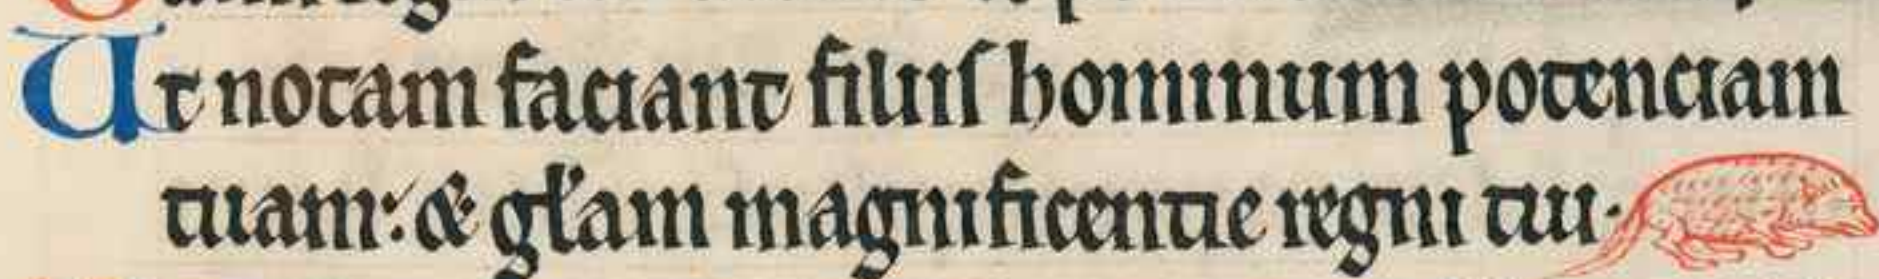 Ut notam faciant filiis hominum potenciam
tuam: & gl'am magnificentie regni tui.